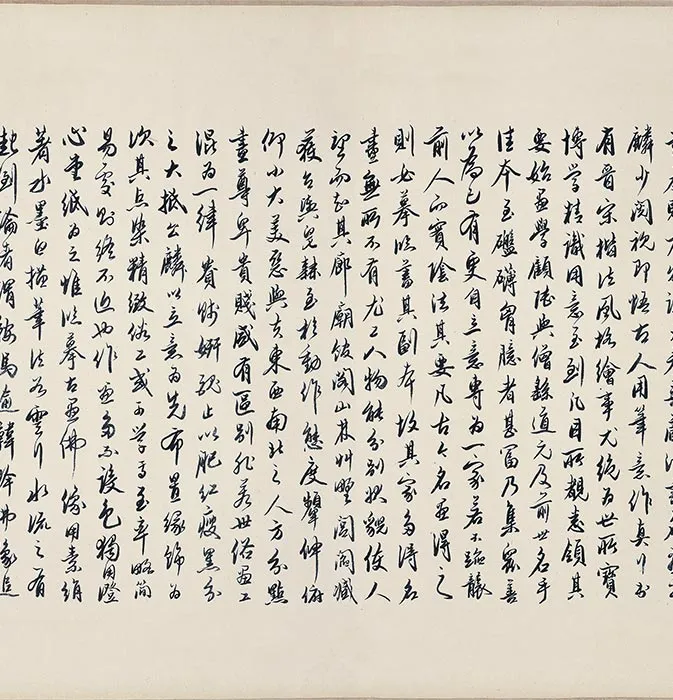 麟少閱視即悟古人用筆意作真行書
有晉宋楷法風格繪事尤絕為世所寶
博學精識用意至到凡目所覩悉領其
要始畫學顧陸與僧繇道元及前世名手
佳本至礚礴胷臆者甚富乃集衆善
以為己有更自立意專為一家若不蹈襲
前人而實陰法其要凡古今名畫得之
則必摹臨蓄其副本故其家多得名
畫無所不有尤工人物能分別狀貌使人
望而知其廊廟館閣山林艸野閭閻臧
獲台輿皂隸至於動作態度顰伸俯
仰小大美惡與夫東西南北之人才分點
畫尊卑貴賤咸有區別非若世俗畫工
混為一律貴賤妍醜止以肥紅瘦黑分
之大抵公麟以立意為先布置緣飾為
次其点染精緻俗工或可学焉至率略簡
易處則終不近也作畫多不設色獨用澄
心堂紙為之惟臨摹古畫佛像用素絹
著水墨白描筆法如雲行水流之有
起到論者謂鞍馬逾韓幹佛像追